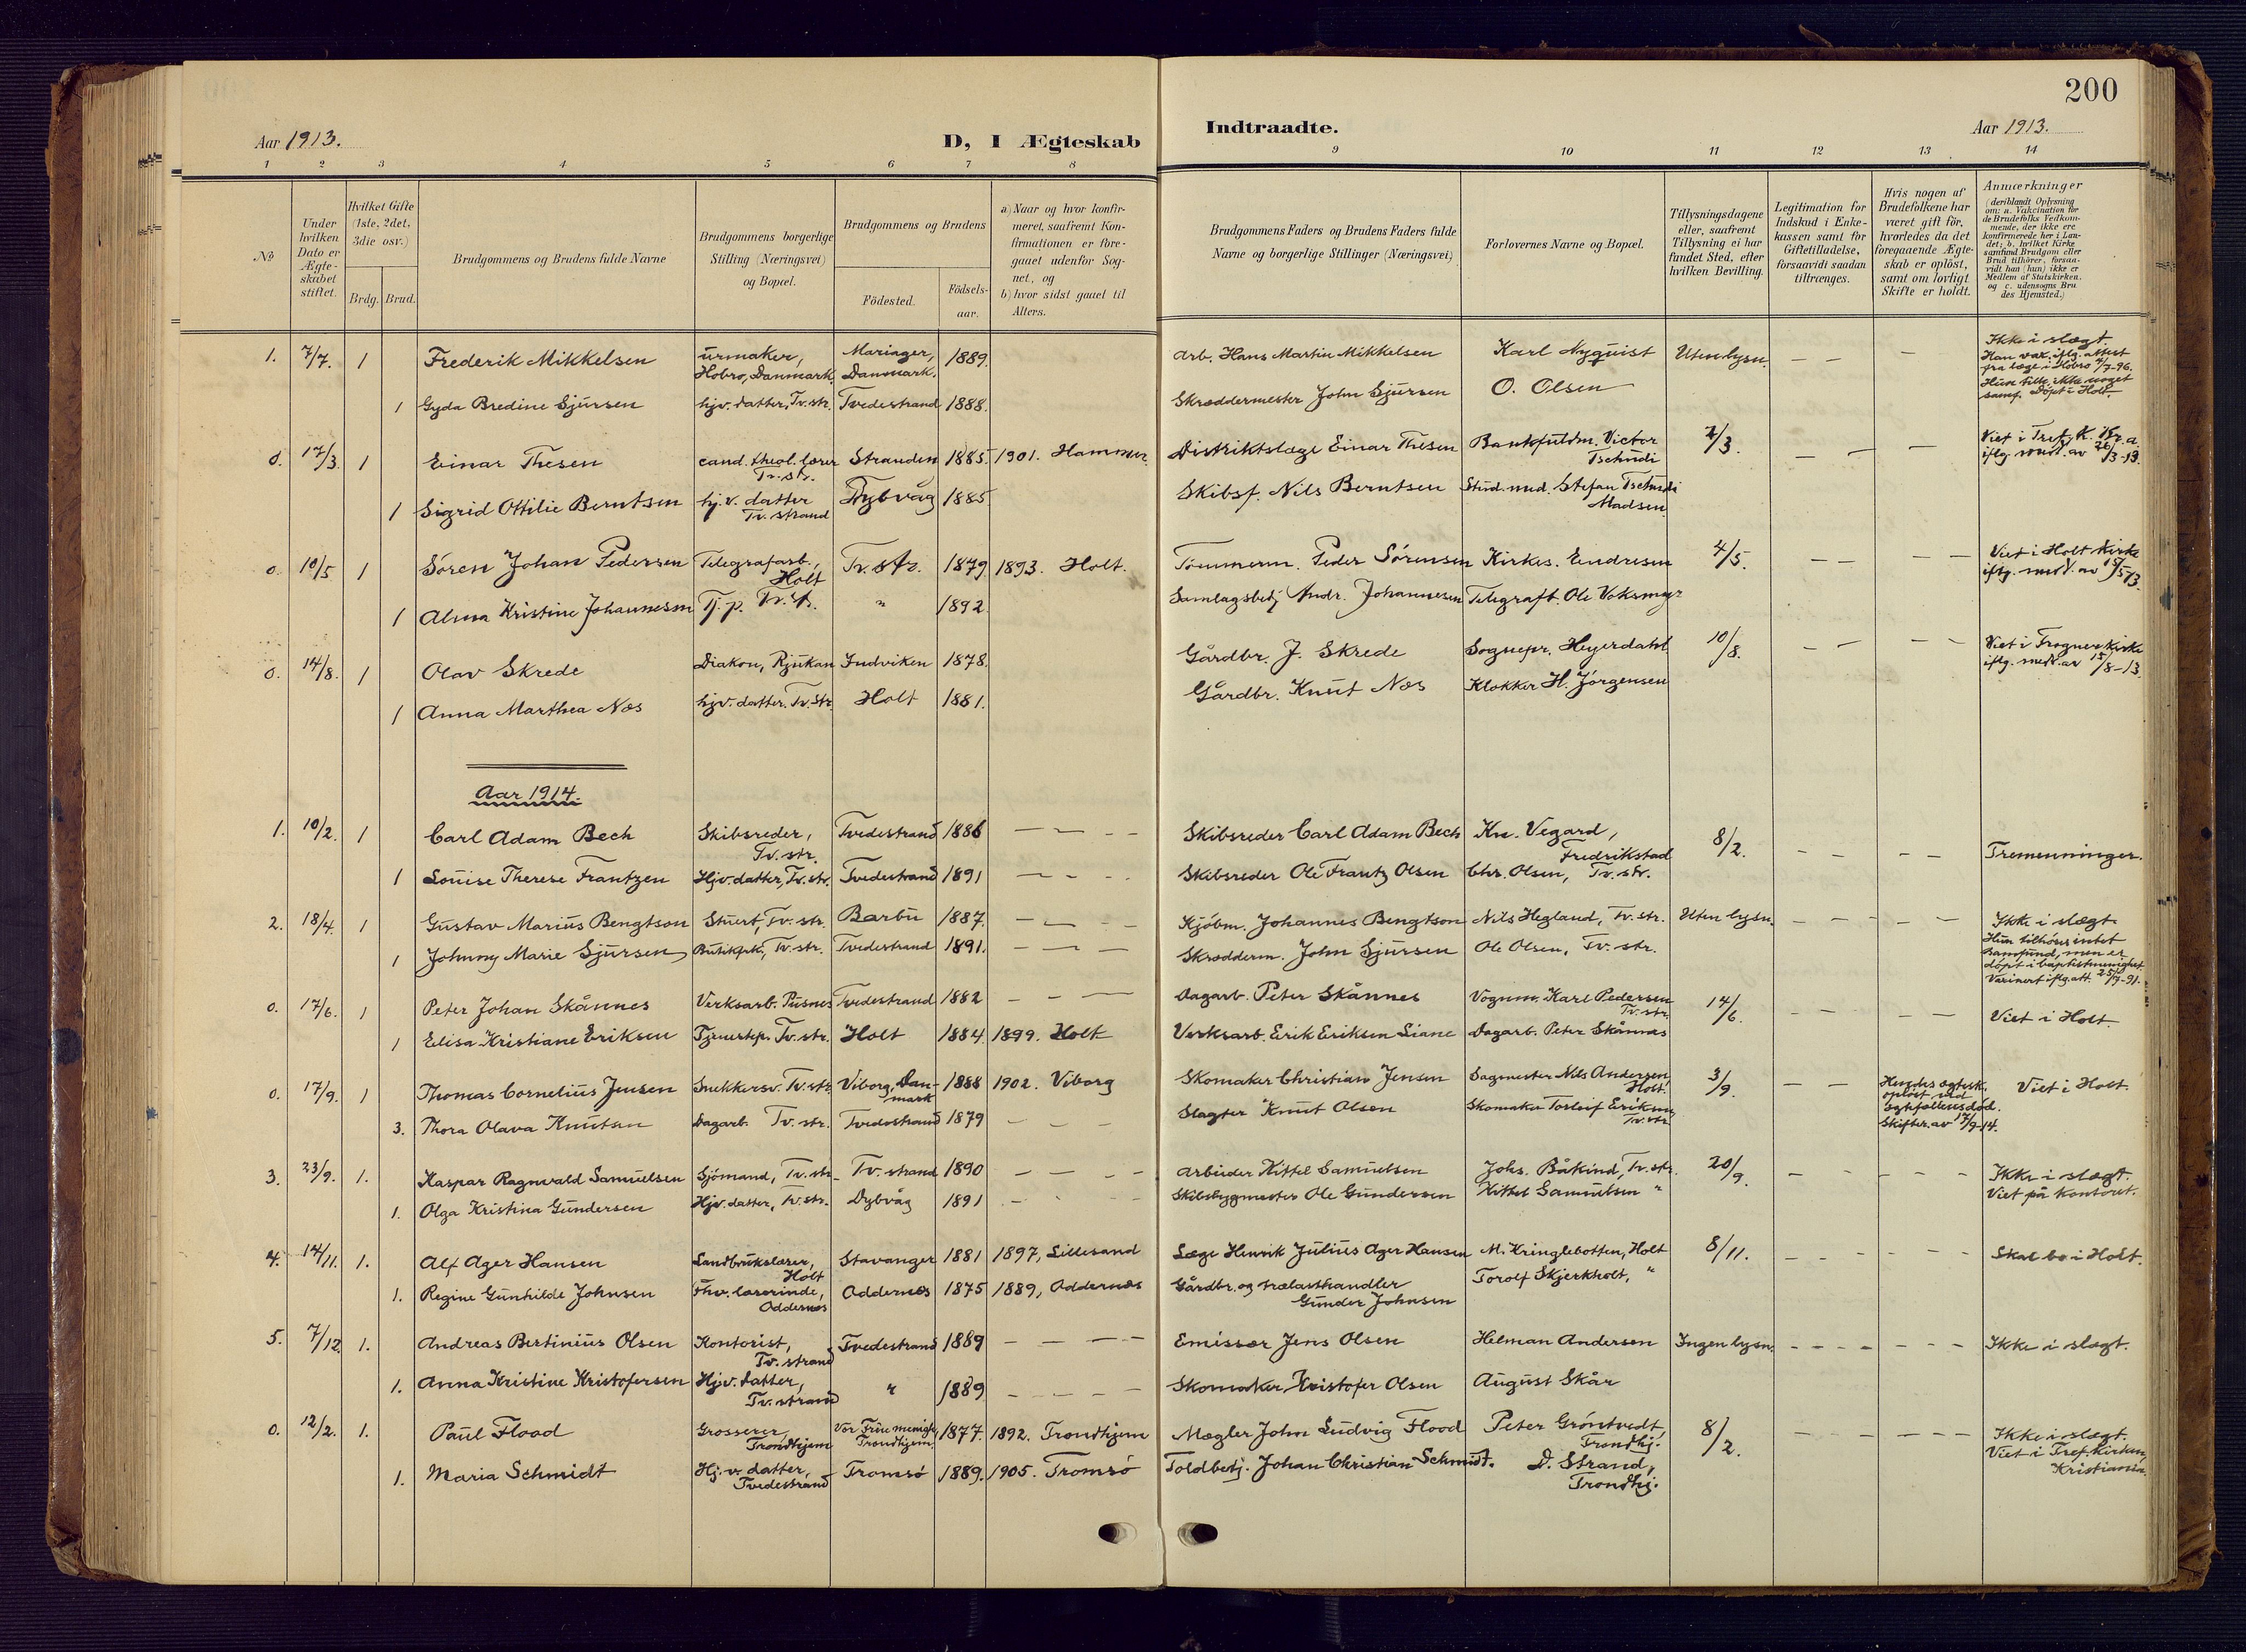 200
Aar 1913.
D, I Ægteskab
Indtraadte.
Aar 1913.
1 2 3 4 5 6 7 8 9 10 11 12 13 14
No
Under hvilken Dato er Ægteskabet stiftet.
Hvilket Gifte (1ste, 2det, 3die osv.)
Brdg. Brud.
Brudgommens og Brudens fulde Navne
Brudgommens borgerlige Stilling (Næringsvei) og Bopæl.
Brudgommens og Brudens
Födested.
Födselsaar.
a) Naar og hvor konfirmeret, saafremt Konfirmationen er foregaaet udenfor Sognet, og
b) hvor sidst gaaet til Alters.
Brudgommens Faders og Brudens Faders fulde Navne og borgerlige Stillinger (Næringsvei)
Forlovernes Navne og Bopæl.
Tillysningsdagene eller, saafremt Tillysning ei har fundet Sted, efter hvilken Bevilling.
Legitimation for Indskud i Enkekassen samt for Giftetilladelse, forsaavidt saadan tiltrænges.
Hvis nogen af Brudefolkene har været gift för, hvorledes da det foregaaende Ægteskab er oplöst, samt om lovligt Skifte er holdt.
Anmærkninger (deriblandt Oplysning om: a. Vakcination for de Brudefolks Vedkommende, der ikke ere konfirmerede her i Landet; b. hvilket Kirkesamfund Brudgom eller Brud tilhörer, forsaavidt han (hun) ikke er Medlem af Statskirken. og c. udensogns Brudes Hjemsted.)
1. 7/7. 1 Frederik Mikkelsen urmaker, Hobro, Danmark. Mariager, Danmark. 1889. Arb. Hans Martin Mikkelsen Karl Nyquist Uten lysn. — — — Ikke i slægt. Han vax. iflg. attest fra læge i Hobro 4/7-96.
1 Gyda Bredine Sjursen hjv. datter, Tv. str. Tvedestrand 1888. Skræddermester John Sjursen O. Olsen Hun tilh. ikke noget samf. Döpt i Holt.
0. 17/3. 1 Einar Thesen cand. theol. lærer Tv. str. Stranden 1885. 1901. Hammer. Distriktslæge Einar Thesen Bankfuldm. Victor Tschudi 2/3. — — — Viet i Tref. K. Kr.a. iflg. medd. av 26/3-13.
1 Sigrid Ottilie Berntsen hj.v. datter Tv. strand Dybvåg 1885 Skibsf. Nils Berntsen Stud. med. Stefan Tschudi Madsen.
0. 10/5 1 Sören Johan Pedersen Telegrafarb., Holt Tv. str. 1879 1893. Holt. Tömmerm. Peder Sörensen Kirkes. Endresen 4/5. — — — — Viet i Holt Kirke iflg. medd. av 15/5 13.
1 Alma Kristine Johannesen Tj. p. Tv. st. " 1892. Samlagsbetj Andr. Johannesen Telegrafb. Ole Voksmyr
0. 14/8. 1 Olav Skrede Diakon, Rjukan Indviken 1878. Gårdbr. J. Skrede Sognepr. Heyerdahl 10/8. — — — — Viet i Frogner kirke iflg. medd. av 15/8-13.
1 Anna Marthea Næs hjv. datter. Tv. str. Holt 1881. Gårdbr. Knut Næs Klokker H. Jörgensen
Aar 1914.
1. 10/2. 1 Carl Adam Bech Skibsreder, Tv. str. Tvedestrand 1886 — — — — Skibsreder Carl Adam Bech Kn. Vegard, Fredrikstad 8/2. — — — — Tremenninger.
1 Louise Therese Frantzen Hjv. datter, Tv. str. Tvedestrand 1891 — — — — Skibsreder Ole Frantz Olsen Chr. Olsen, Tv. str.
2. 18/4. 1 Gustav Marius Bengtson Stuert, Tv. str. Barbu 1887. — — — — Kjöbm. Johannes Bengtson Nils Hegland, Tv. str. Uten lysn. — — — — Ikke i slægt.
1 Johnny Marie Sjursen Butikfrk., Tv. str. Tvedestrand 1891. — — — Skrædderm. John Sjursen Ole Olsen, Tv. str. Hun tilhörer intet samfund, men er döpt i baptistmenighet Varinert iflg. att. 25/9-91.
0. 17/6. 1 Peter Johan Skånnes Verksarb. Pusnes Tvedestrand 1882 — — — Dagarb. Peter Skånnes Vognm. Karl Pedersen Tv. str. 14/6. — — — — Viet i Holt.
1 Elisa Kristiane Eriksen Tjenestep. Tv. str. Holt 1884. 1899. Holt Verksarb. Erik Eriksen Liane Dagarb. Peter Skånnes
0. 17/9. 1 Thomas Cornelius Jensen Snekkersv. Tv. str. Viborg, Danmark 1888 1902. Viborg Skomaker Christian Jensen Sagmester Nils Andersen, Holt. 3/9. — — Hendes ægtesk. oplöst ved ægtefællens död. Skifter. av 17/9-14. Viet i Holt.
3. Thora Olava Knutsen Dagarb. Tv. str. Tvedestrand 1879 — — — Slagter Knut Olsen Skomaker Torleif Eriksen, Tv. str.
3. 23/9. 1. Kaspar Ragnvald Samuelsen Sjömand, Tv. str. Tv. strand 1890 — — — Arbeider Kittel Samuelsen Johs. Båkind, Tv. str. 20/9. — — — — Ikke i slægt. Viet på kontoret.
1. Olga Kristina Gundersen Hjv. datter, Tv. str. Dybvåg 1891 — — — Skibsbygmester Ole Gundersen Kittel Samuelsen "
4. 14/11. 1. Alf Ager Hansen Landbrukslærer, Holt Stavanger 1881 1897, Lillesand Læge Henrik Julius Ager Hansen M. Kringlebotten, Holt 8/11. — — — — Skal bo i Holt.
1. Regine Gunhilde Johnsen fhv. lærerinde, Oddernes Oddernes 1875 1889, Oddernæs Gårdbr. og trælasthandler Gunder Johnsen Torolf Skjerkholt, "
5. 7/12 1. Andreas Bertinius Olsen Kontorist, Tv. strand Tvedestrand 1889 — — — — Emissær Jens Olsen Helman Andersen Ingen lysn. — — — — Ikke i slægt.
1. Anna Kristine Kristofersen Hjv. datter, Tv. strand " 1889 — — — Skomaker Kristofer Olsen August Skår
0. 12/2. 1. Paul Flood Grosserer, Trondhjem Vor Frue menigh. Trondhjem 1877. 1892. Trondhjem Mægler John Ludvig Flood Peter Gröntvedt, Trondhj. 8/2. — — — — Ikke i slægt. Viet i Tref. kirken, Kristiania.
1. Maria Schmidt Hj. v. datter, Tvedestrand Tromsö 1889. 1905. Tromsö Toldbetj. Johan Christian Schmidt. D. Strand, Trondhj.